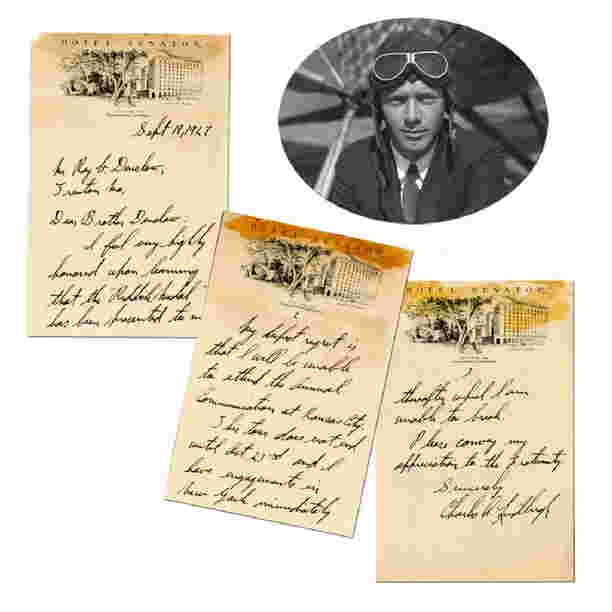 HOTEL SENATOR
Sept
Mr Ray Denslow,
Trenton Mo,
Dear Brother Denslow:
I feel very highly
honored upon learning
that the medal
has been presented to me
HOTEL SENATOR
2
My deepest regret is
that I will be unable
to attend the annual
communication at Kansas City.
The tour does not end
until Oct 23rd and I
have engagements in
New York immediately
HOTEL SENATOR
which I am
unable to break.
Please convey my
appreciation to the fraternity
Sincerely
Charles A Lindbergh